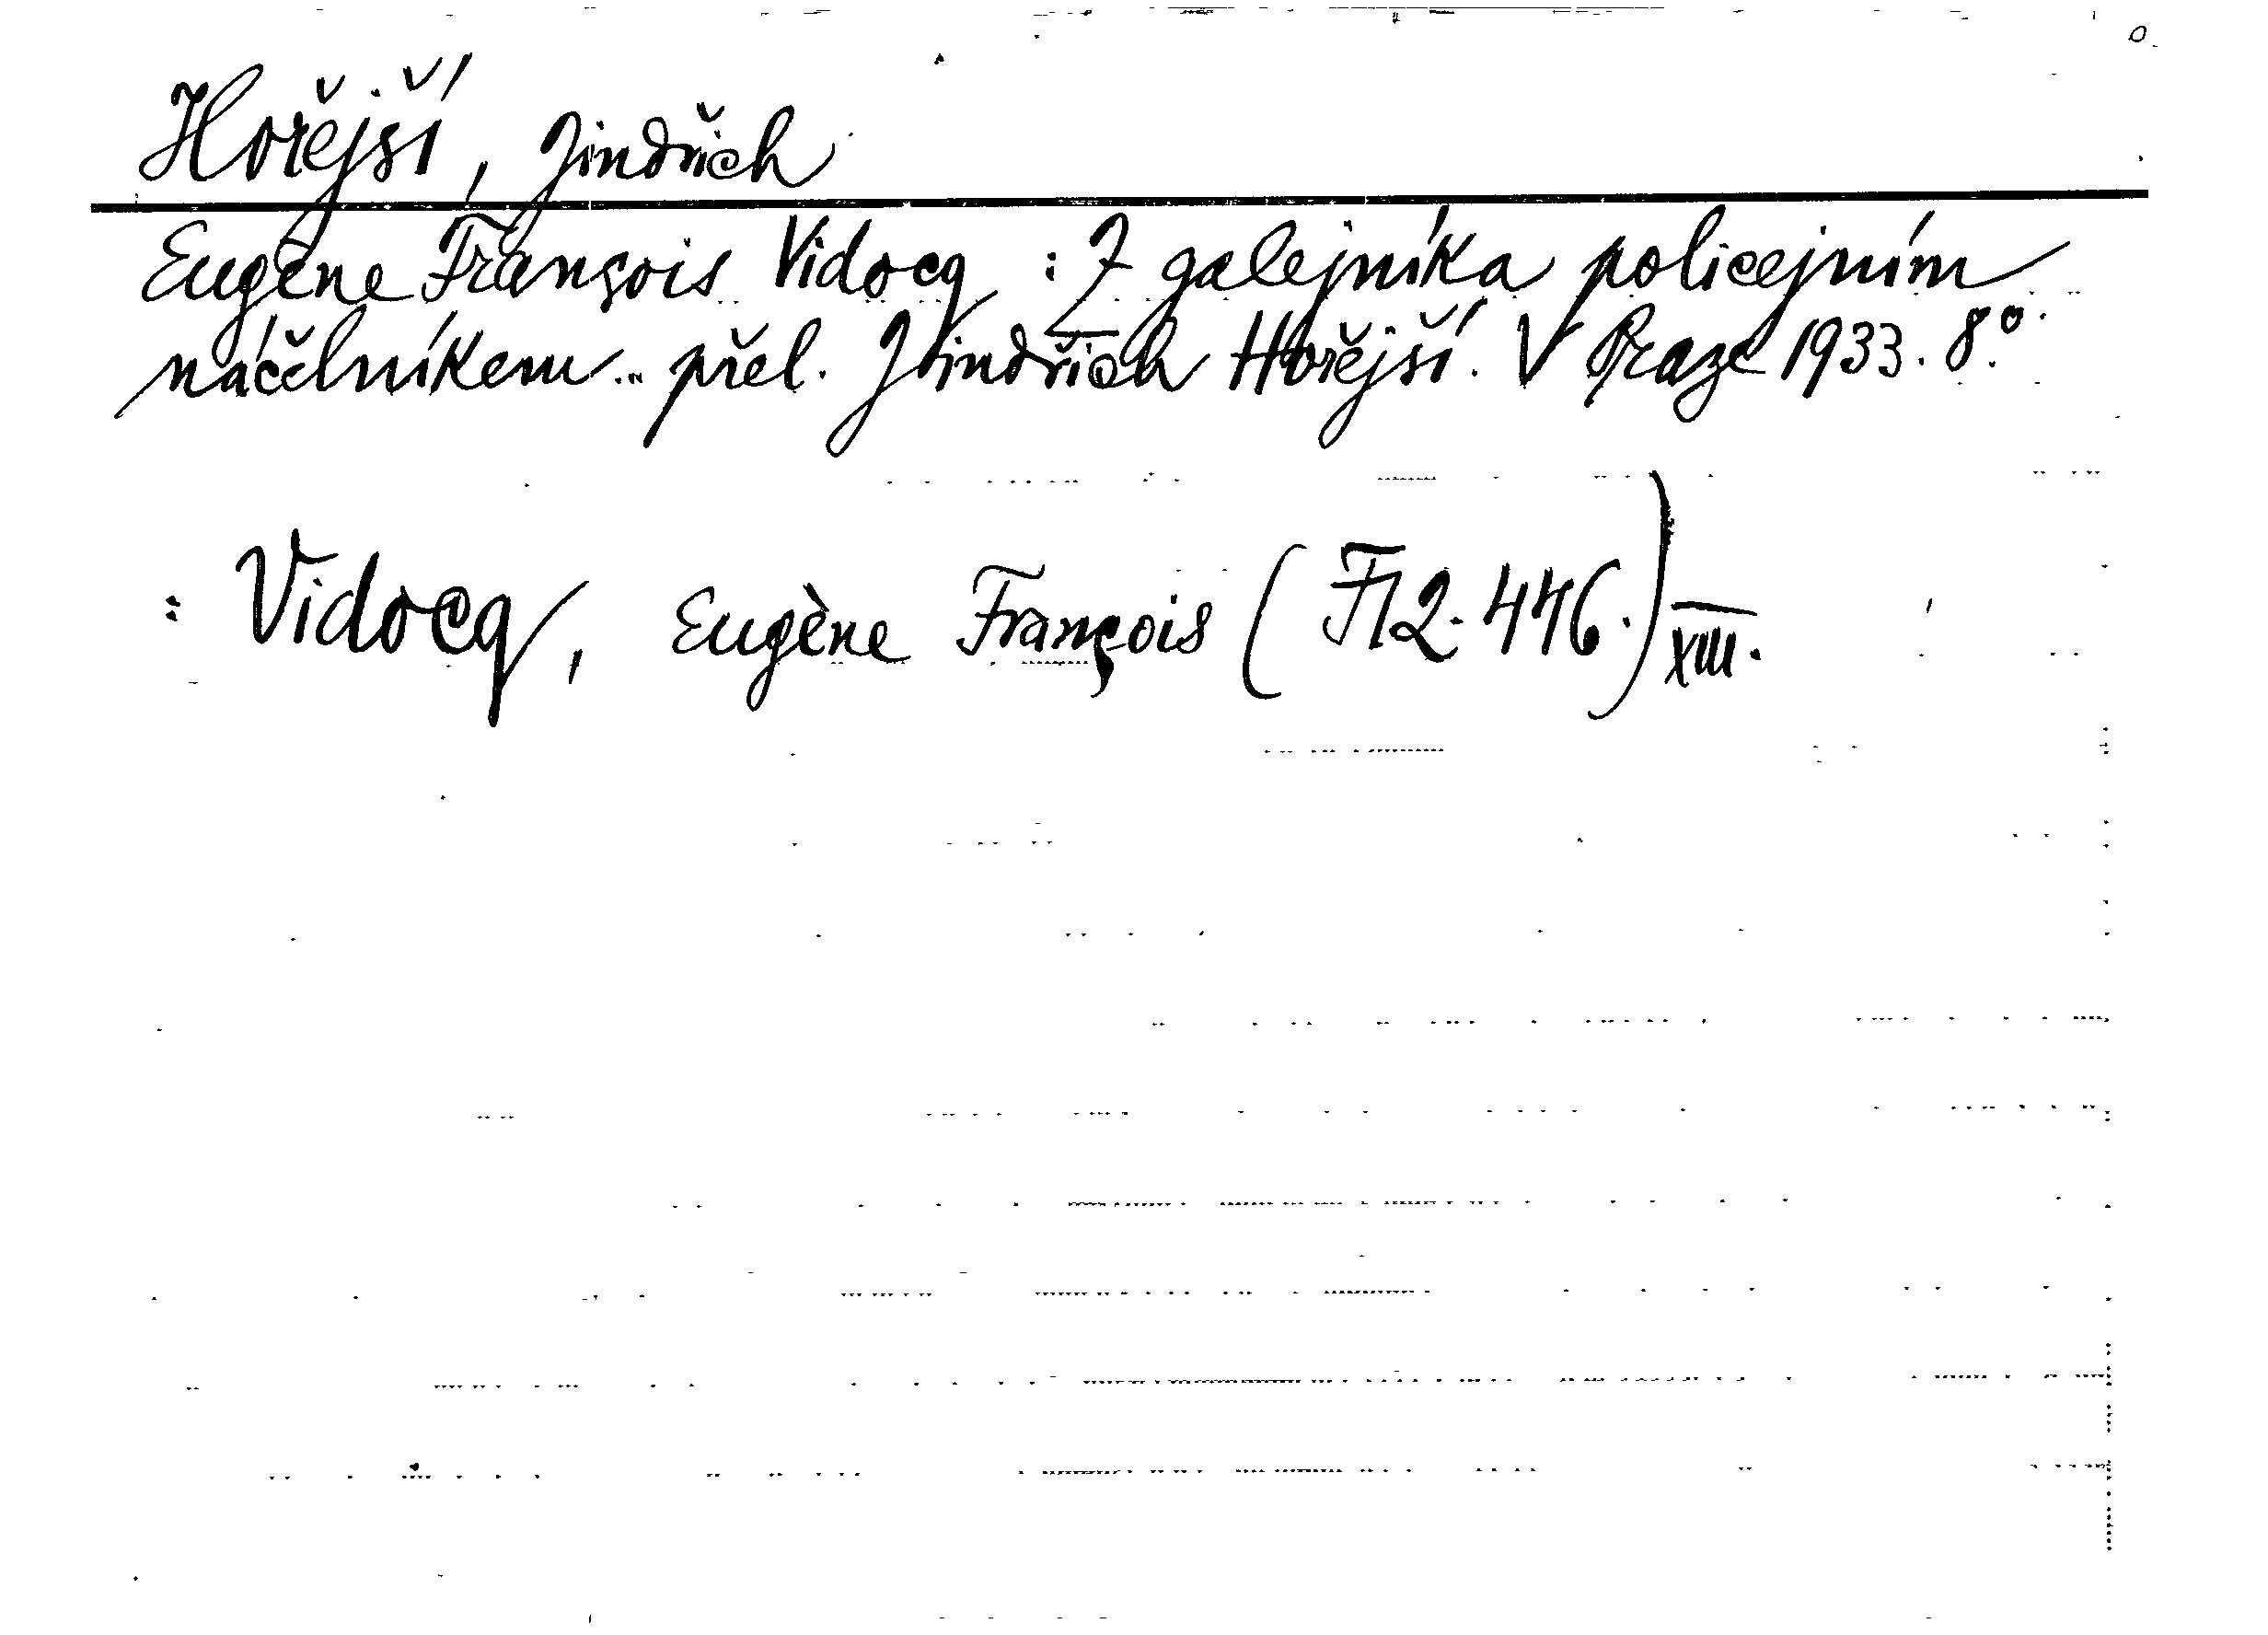 Hořejší, Jindřich
Eugène François Vidocq : Z galejníka policejním
náčelníkem... přel. Jindřich Hořejší. V Praze 1933. 8°.
: Vidocq, Eugène François ( 446.) XIII.